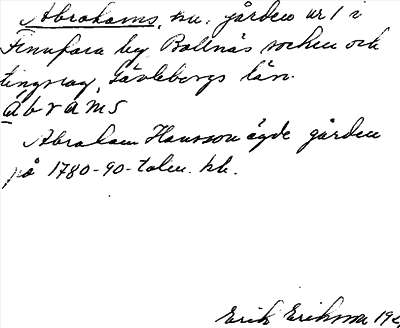 Abrahams, nu, gården nr 1 i
Finnfara by, Bollnäs socken och
tingslag, Gävleborgs län.
abrams
Abraham Hansson ägde gården
på 1780-90-talen. kb.
Erik Eriksson 19